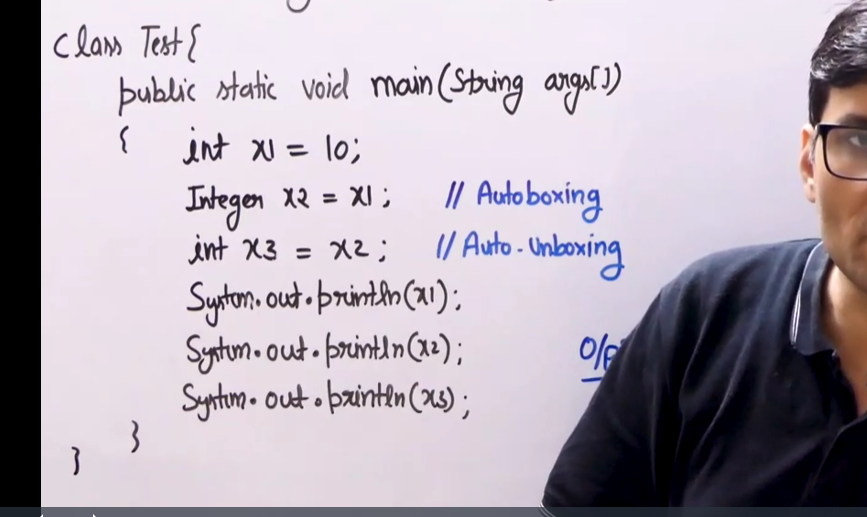 class Test{
public static void main(String args[])
{ int x1 = 10;
Integer x2 = x1; // Autoboxing
int x3 = x2; // Auto-Unboxing
System.out.println(x1);
System.out.println(x2);
System.out.println(x3);
}
}